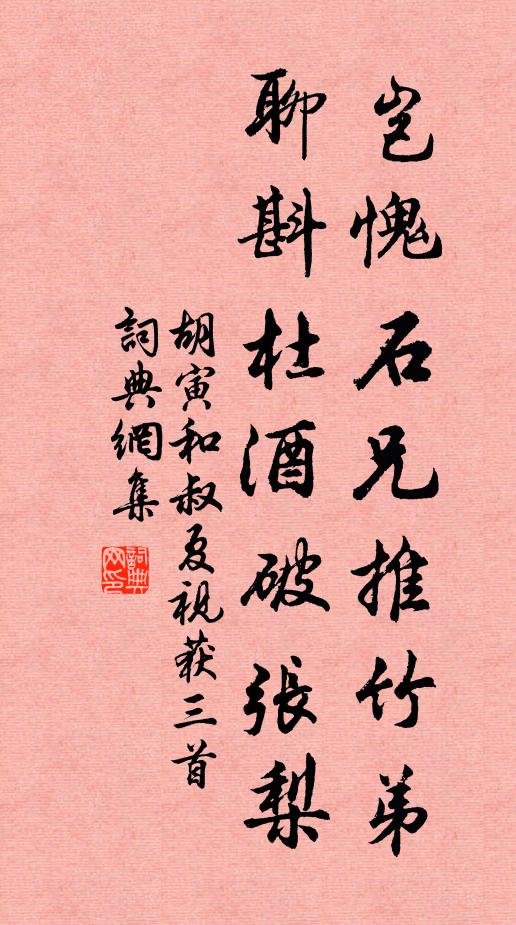 豈愧石兄推竹弟
聊斟杜酒破張梨
胡寅和叔夏視获三首
詞典網集
詞典网印